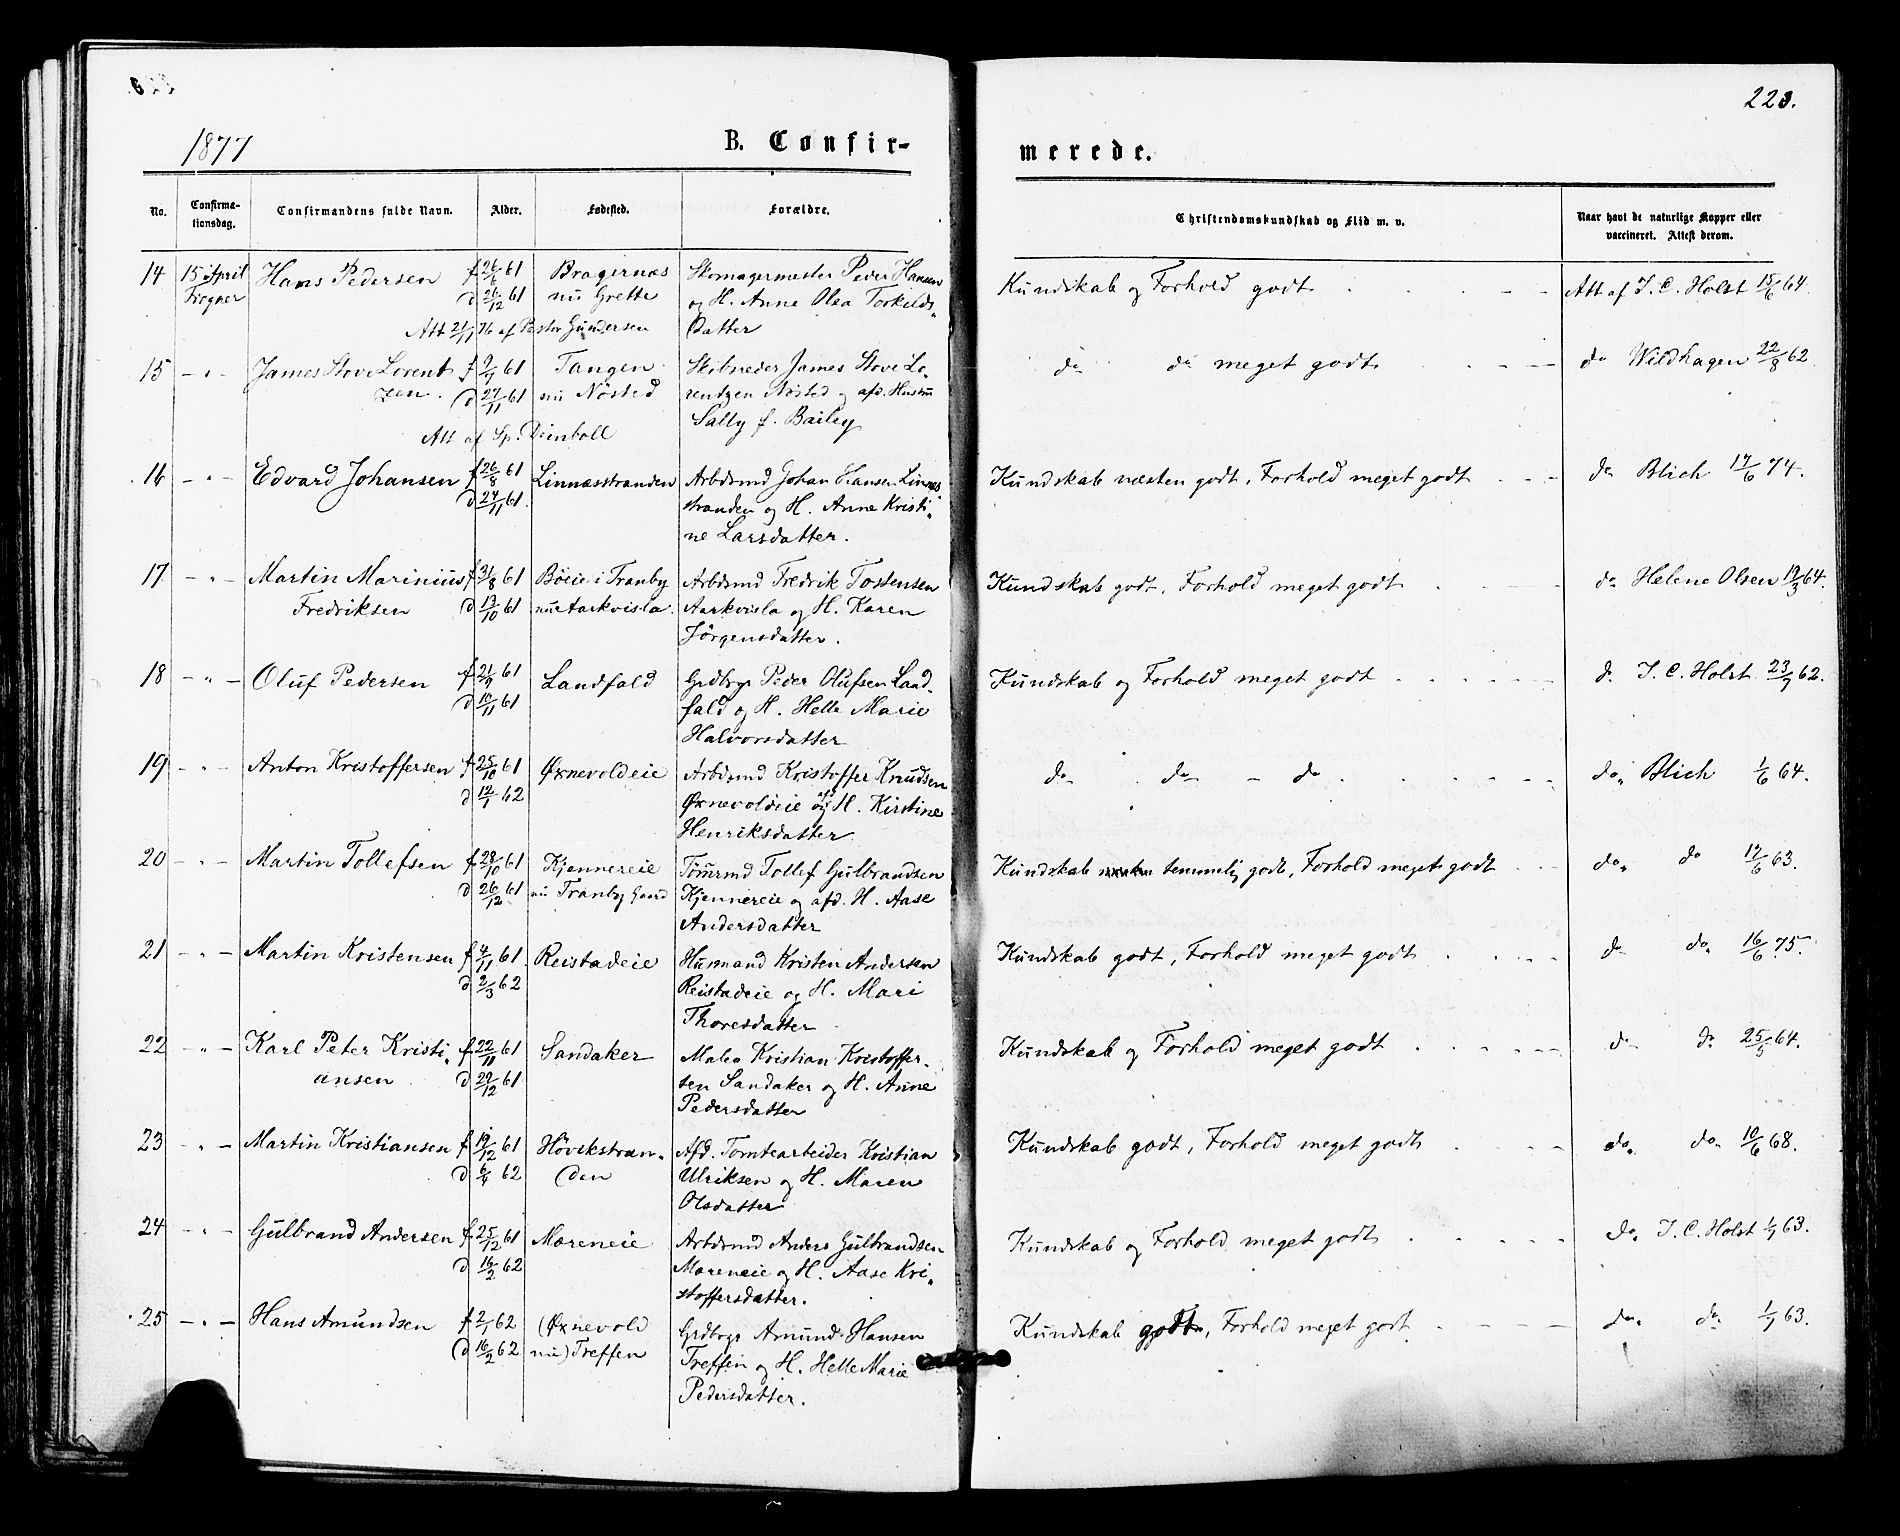 1877
B. Confir-
No.
Confirma-
tionsdag.
Confirmandens fulde Navn.
Alder.
Fødested.
Forældre.
14 15 April Hans Pedersen f 26/6 61 Bragernæs Skomagermester Peder Hansen
Frogner d 26/12 61 nu Grette og H. Anne Olea Torkelds-
Att 21/11 76 af Pastor Gundersen Datter
15 - " - James Stove Lorent f 9/1 61 Tangen Skibsreder James Stove Lo-
zen. d 27/11 61 nu Nøsted rentzen Nøsted og afd. Hustru
Att af Sp. Deinboll Sally f. Bailey
16 - " - Edvard Johansen f 26/8 61 Linnæsstranden Arbdsmd Johan Hansen Linnæs
d 24/11 61. stranden og H. Anne Kristi-
ne Larsdatter.
17 - " - Martin Marinius f 31/8 61 Böeie i Tranby Arbdsmd Fredrik Tostensen
Fredriksen d 13/10 61 nu Aarkvisla. Aarkvisla og H. Karen
Jörgensdatter.
18 - " - Oluf Pedersen f 21/9 61 Landfald Grdbrgr Peder Olufsen Land-
d 10/11 61 fald og H. Helle Marie
Halvorsdatter
19 - " - Anton Kristoffersen f 25/10 61 Øxnevoldeie Arbdsmd Kristoffer Knudsen
d 12/1 62 Øxnevoldeie og afd H. Kirstine
Henriksdatter
20 - " - Martin Tollefsen f 28/10 61 Kjennereie Tömrmd Tollef Gulbrandsen
d 26/12 61 nu Tranby Gaard Kjennereie og afd. H. Aase
Andersdatter
21 - " - Martin Kristensen f 4/11 61. Reistadeie Husmand Kristen Andersen
d 2/3 62 Reistadeie og H. Mari
Thoresdatter
22 - " - Karl Peter Kristi- f 22/11 61 Sandaker Maler Kristian Kristoffer-
ansen d 29/12 61 sen Sandaker og H. Anne
Pedersdatter
23 - " - Martin Kristiansen f 19/12 61 Hövikstran- Afd. Tomtearbeider Kristian
d 6/4 62 den Ulriksen og H. Maren
Olsdatter
24 - " - Gulbrand Andersen f 25/12 61 Moreneie Arbdsmd Anders Gulbrandsen
d 16/2 62 Moreneie og H. Aase Kri-
stoffersdatter.
25 - " - Hans Amundsen f 2/1 62 (Øxnevold Grdbrgr Amund Hansen
d 16/2 62 nu) Treffen Treffin og H. Helle Marie
Pedersdatter.
merede.
Christendomskundskab og Flid m. v.
Naar havt de naturlige Kopper eller
vaccineret. Attest derom.
Kundskab og Forhold godt - - Att af J. C. Holst 15/6 64.
do do meget godt - - do Wildhagen 22/8 62
Kundskab næsten godt, Forhold meget godt - - do Blich 17/6 74.
Kundskab godt, Forhold meget godt - - do Helene Olsen 19/3 64.
Kundskab og Forhold meget godt - - do J. C. Holst 23/7 62.
do do - do - - do Blich 1/6 64.
Kundskab temmelig godt, Forhold meget godt - - do do 12/6 63.
Kundskab godt, Forhold meget godt - - do do 16/6 75.
Kundskab og Forhold meget godt - - do do 25/5 64.
Kundskab godt, Forhold meget godt - - do do 10/6 68.
Kundskab og Forhold meget godt - - do J. C. Holst 1/7 63.
Kundskab godt, Forhold meget godt - - do do 1/7 63.